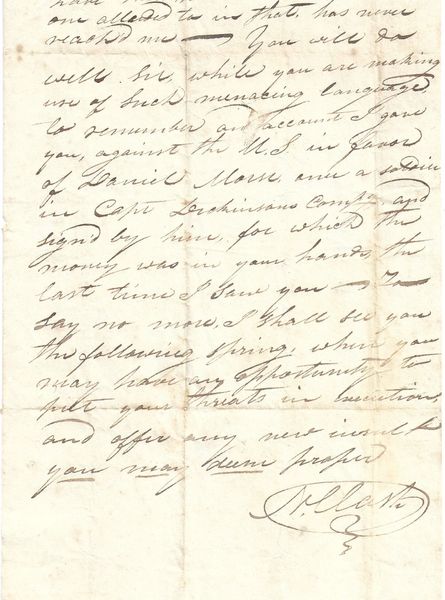 one alluded to in that, has never
reach'd me — You will do
well Sir, while you are making
use of such menacing language
to remember an account I gave
you, against the U.S. in favor
of Daniel Morse once a soldier
in Capt Dickinsons Compy. and
sign'd by him, for which the
money was in your hands the
last time I saw you — To
say no more, I shall see you
the following spring, when you
may have any opportunity to
put your threats in execution,
and offer any new insult
you may deem proper